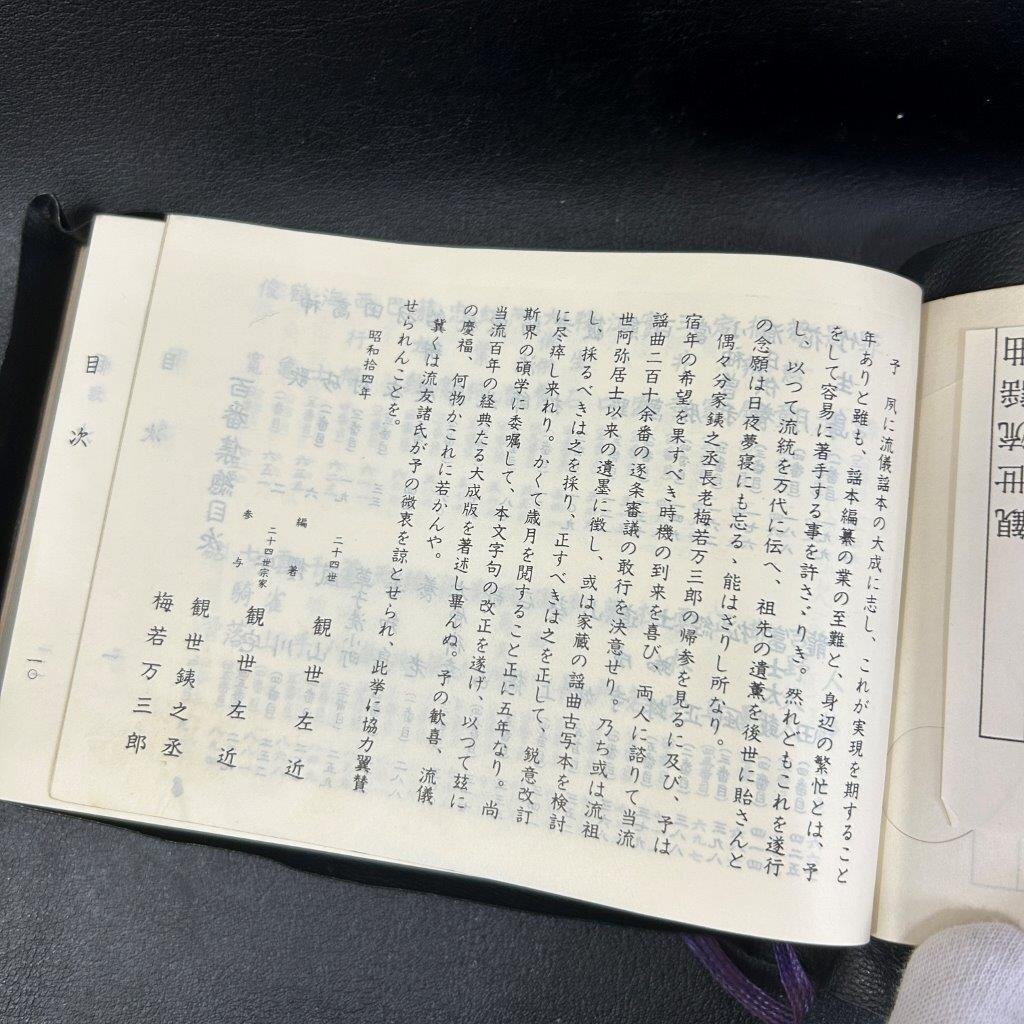 予　夙に流儀謡本の大成に志し、これが実現を期すること
年ありと雖も、謡本編纂の業の至難と、身辺の繁忙とは、予
をして容易に著手する事を許さゞりき。然れどもこれを遂行
し、以つて流統を万代に伝へ、祖先の遺薫を後世に貽さんと
の念願は日夜夢寝にも忘るゝ能はざりし所なり。
偶々分家銕之丞長老梅若万三郎の帰参を見るに及び、予は
宿年の希望を果すべき時機の到来を喜び、両人に諮りて当流
謡曲二百十余番の逐条審議の敢行を決意せり。乃ち或は流祖
世阿弥居士以来の遺墨に徴し、或は家蔵の謡曲古写本を検討
し、採るべきは之を採り、正すべきは之を正して、鋭意改訂
に尽瘁し来れり。かくて歳月を閲すること正に五年なり。尚
斯界の碩学に委嘱して、本文字句の改正を遂げ、以つて玆に
当流百年の経典たる大成版を著述し畢んぬ。予の歓喜、流儀
の慶福、何物かこれに若かんや。
冀くは流友諸氏が予の微衷を諒とせられ、此挙に協力翼賛
せられんことを。
昭和拾四年
編著 二十四世 観世左近
参与 二十四世宗家 観世左近
観世銕之丞
梅若万三郎
目次
一〇
観世流謡曲